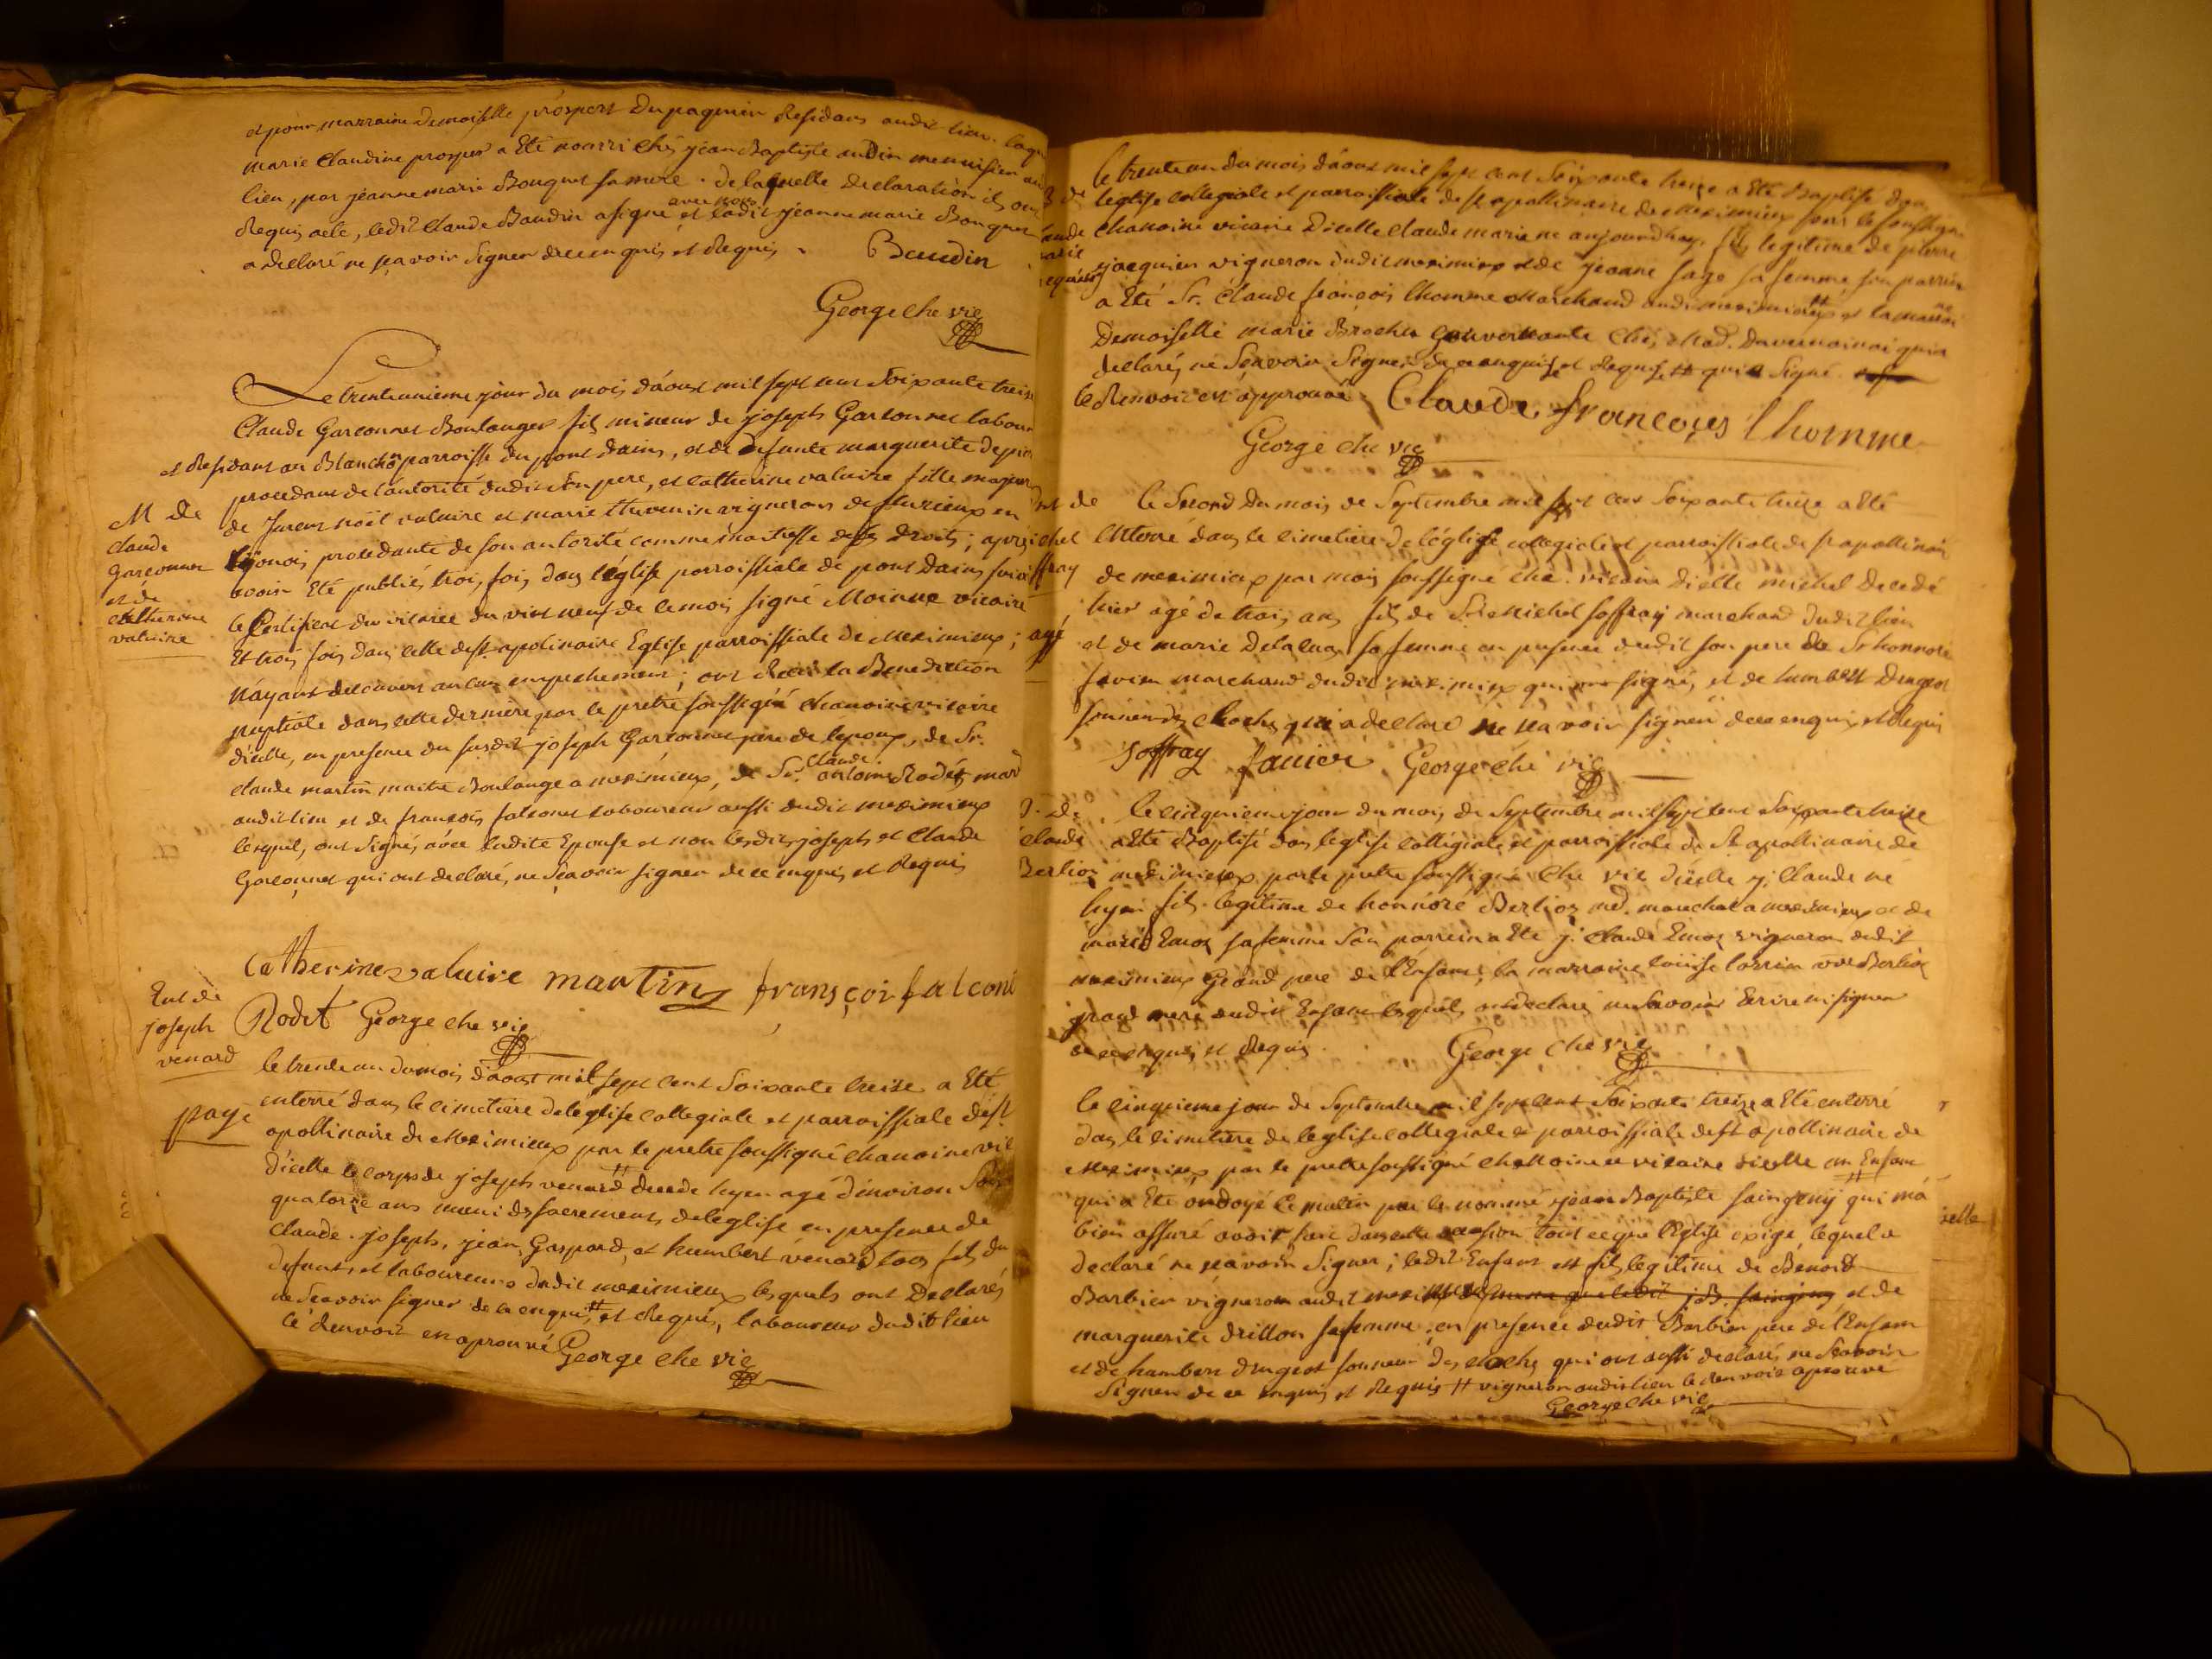 et pour marraine demoiselle prospert Dupaquier Residans audit lieu. laqu
marie Claudine prosper a Eté nourri chés jean Baptiste audin menuisier au
lieu, par jeanne marie Bouquet sa mere. de laquelle declaration ils ont
Requis acte, ledit Claude Baudin a signé avec nous et ladit jeanne marie Bouquet
a declaré ne sçavoir signer de ce enquis et Requis.
Baudin
George che vic
Le trente unieme jour du mois d'aoust mil sept cent Soixante treize
Claude Garconnet Boulanger fils mineur de joseph Garconnet labour
et Residant au Blanchon parroisse du pont dains, et de defunte marguerite
procedant de l'autorité dudit Son pere, et catherine valuire fille majeur
de noël valuire et marie thevenin vignerons de fleurieux en
lyonois, procedante de son autorité comme maitresse de ses droits; après
avoir Eté publiés trois fois dans l'église parroissiale de pont dains suivant
le Certificat du vicaire du vint neuf de ce mois signé Moinne vicaire
Et trois fois dans celle de st. apolinaire Eglise parroissiale de Meximieux;
N'ayant decouvert aucun empechement; ont Reçu la Benediction
nuptiale dans cette derniere par le pretre soussigné chanoine vicaire
d'icelle, en presence du susdit joseph Garconnet pere de lepoux, de Sr.
claude martin maitre Boulange a meximieux, de Sr. claude antoine Rodet mard
audit lieu et de françois falconet laboureur aussi dudit meximieux
lesquels ont signés avec ladite Epouse et non lesdits joseph et Claude
Garconnet qui ont declaré, ne sçavoir signer de ce enquis et Requis
M de
claude
garconnet
et de
catherine
valuire
Catherine valuire martin françois falconet
Rodet George che vic
Ent de
joseph
venard
page
le trente un du mois d'aoust mil sept cent Soixante treize a Eté
enterré dans le cimetiere de leglise collegiale et parroissiale de st.
apollinaire de Meximieux par le pretre soussigné chanoine vic
d'icelle le corps de joseph venard decede hyer agé d'environ
quatorze ans muni des sacrements de leglise en presence de
Claude. joseph, jean, Gaspard, et humbert venard tous fils du
defunt, et laboureurs dudit meximieux lesquels ont declarés
ne sçavoir signer de ce enquis # et Requis, laboureur dudit lieu
le Renvoit est aprouvé George che vic
le trente un du mois d'aoust mil sept cent Soixante treize a Eté Baptisé dans
leglise collegiale et parroissiale de st apollinaire de Meximieux par le soussigné
chanoine vicaire d'icelle claude marie né aujourdhuy, fils legitime de pierre
jacquier vigneron dudit meximieux et de jeanne sage sa femme son parrin
a Eté Sr. claude françois lhomme Marchand audit meximieux # et la marraine
Demoiselle marie Brochet gouvernante chés Mad.
declarés ne Sçavoir Signer de ce enquise et Requise # qui a Signé
le Renvoi est approuvé Claude françois lhomme
George che vic
le Second du mois de Septembre mil sept cent Soixante treize a Eté
Enterré dans le cimetiere de l'église collegiale et parroissiale de st apollinaire
de meximieux par moi soussigné che. vicaire d'icelle michel decedé
hier agé de trois ans fils de Sr. Michel soffray marchand dudit lieu
et de marie Delaluas sa femme en presence dudit son pere de Sr honnore
favier marchand dudit meximieux qui ont signé, et de humbert Drugeot
sonneur des cloches qui a declaré ne sçavoir signer de ce enquis et Requis
Soffray favier George che vic
B. de
claude
Berlioz
le cinquieme jour du mois de Septembre mil sept cent Soixante treize
a Eté Baptisé dans leglise collégiale et parroissiale de St apollinaire de
meximieux par le pretre soussigné che vic d'icelle j: Claude né
hyer fils legitime de honnoré Berlioz md. marechal a meximieux et de
marie Emoz sa femme son parrein a Eté j: claude Emoz vigneron dudit
meximieux Grand pere de l'Enfant, la marraine louise lorrin vve Berlioz
grand mere dudit Enfant lesquels ont declaré ne Sçavoir Ecrire ni signer
de ce enquis et Requis.
George che vic
le cinquieme jour de Septembre mil sept cent Soixante treize a Eté enterré
dans le cimetiere de leglise collegiale et parroissiale de st apollinaire de
Meximieux par le pretre soussigné chanoine et vicaire d'icelle un Enfant
qui a Eté ondoyé le matin par le nommé jean Baptiste saingeny # qui m'a
bien assuré avoir fait dans cette occasion tout ce que l'Eglise exige, lequel a
declaré ne sçavoir Signer; ledit Enfant est fils legitime de Benoit
Barbier vigneron audit meximieux et de
marguerite drillon sa femme; en presence dudit Barbier pere de l'Enfant
et de humbert drugeot sonneur des cloches qui ont aussi declarés ne Sçavoir
Signer de ce enquis et Requis # vigneron audit lieu le Renvoi aprouvé
George che vic